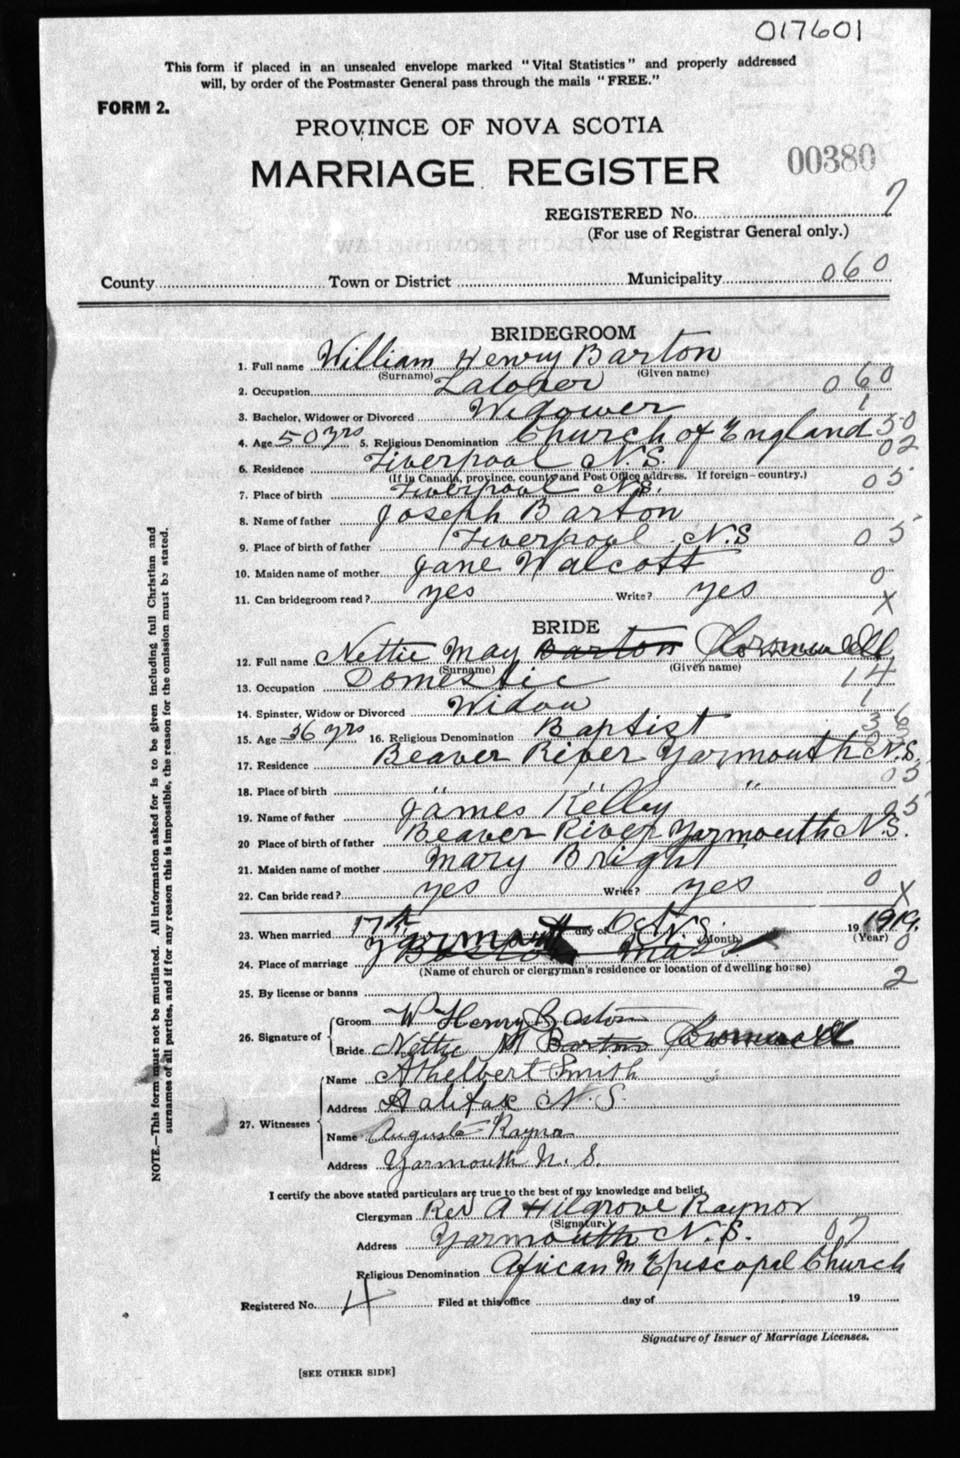 017601
This form if placed in an unsealed envelope marked "Vital Statistics" and properly addressed
will, by order of the Postmaster General pass through the mails "FREE."
FORM 2.
PROVINCE OF NOVA SCOTIA
MARRIAGE REGISTER
00380
REGISTERED No. 7
(For use of Registrar General only.)
County Town or District Municipality 060
BRIDEGROOM
1. Full name William Henry Barton
(Surname) (Given name)
2. Occupation Laborer 0 60
3. Bachelor, Widower or Divorced Widower 1
4. Age 50 yrs 5. Religious Denomination Church of England 50
6. Residence Liverpool N.S. 02
(If in Canada, province, county and Post Office address. If foreign-country.)
7. Place of birth Liverpool N.S. 05
8. Name of father Joseph Barton
9. Place of birth of father Liverpool N.S 05
10. Maiden name of mother Jane Walcott
11. Can bridegroom read? yes Write? yes 0
X
BRIDE
12. Full name Nettie May Barton
(Surname) (Given name)
13. Occupation Domestic 14
14. Spinster, Widow or Divorced Widow 1
15. Age 36 yrs 16. Religious Denomination Baptist 36
17. Residence Beaver River Yarmouth N.S.
18. Place of birth " " 05
19. Name of father James Kelley 05
20 Place of birth of father Beaver River Yarmouth N.S.
21. Maiden name of mother Mary Bright
22. Can bride read? yes Write? yes 0
X
23. When married 17th day of Oct 1919.
(Month) (Year)
24. Place of marriage Yarmouth N.S. Boston Mass 0
(Name of church or clergyman's residence or location of dwelling house)
25. By license or banns 2
26. Signature of
Groom W Henry Barton
Bride Nettie M Barton
27. Witnesses
Name Athelbert Smith
Address Halifax N.S.
Name Augusta Raynor
Address Yarmouth N.S.
I certify the above stated particulars are true to the best of my knowledge and belief.
Clergyman Rev A Hilgrove Raynor
(Signature)
Address Yarmouth N.S. 07
Religious Denomination African M Episcopal Church
Registered No. 4 Filed at this office day of 19
Signature of Issuer of Marriage Licenses.
[SEE OTHER SIDE]
NOTE.—This form must not be mutilated. All information asked for is to be given including full Christian and
surnames of all parties, and if for any reason this is impossible, the reason for the omission must be stated.